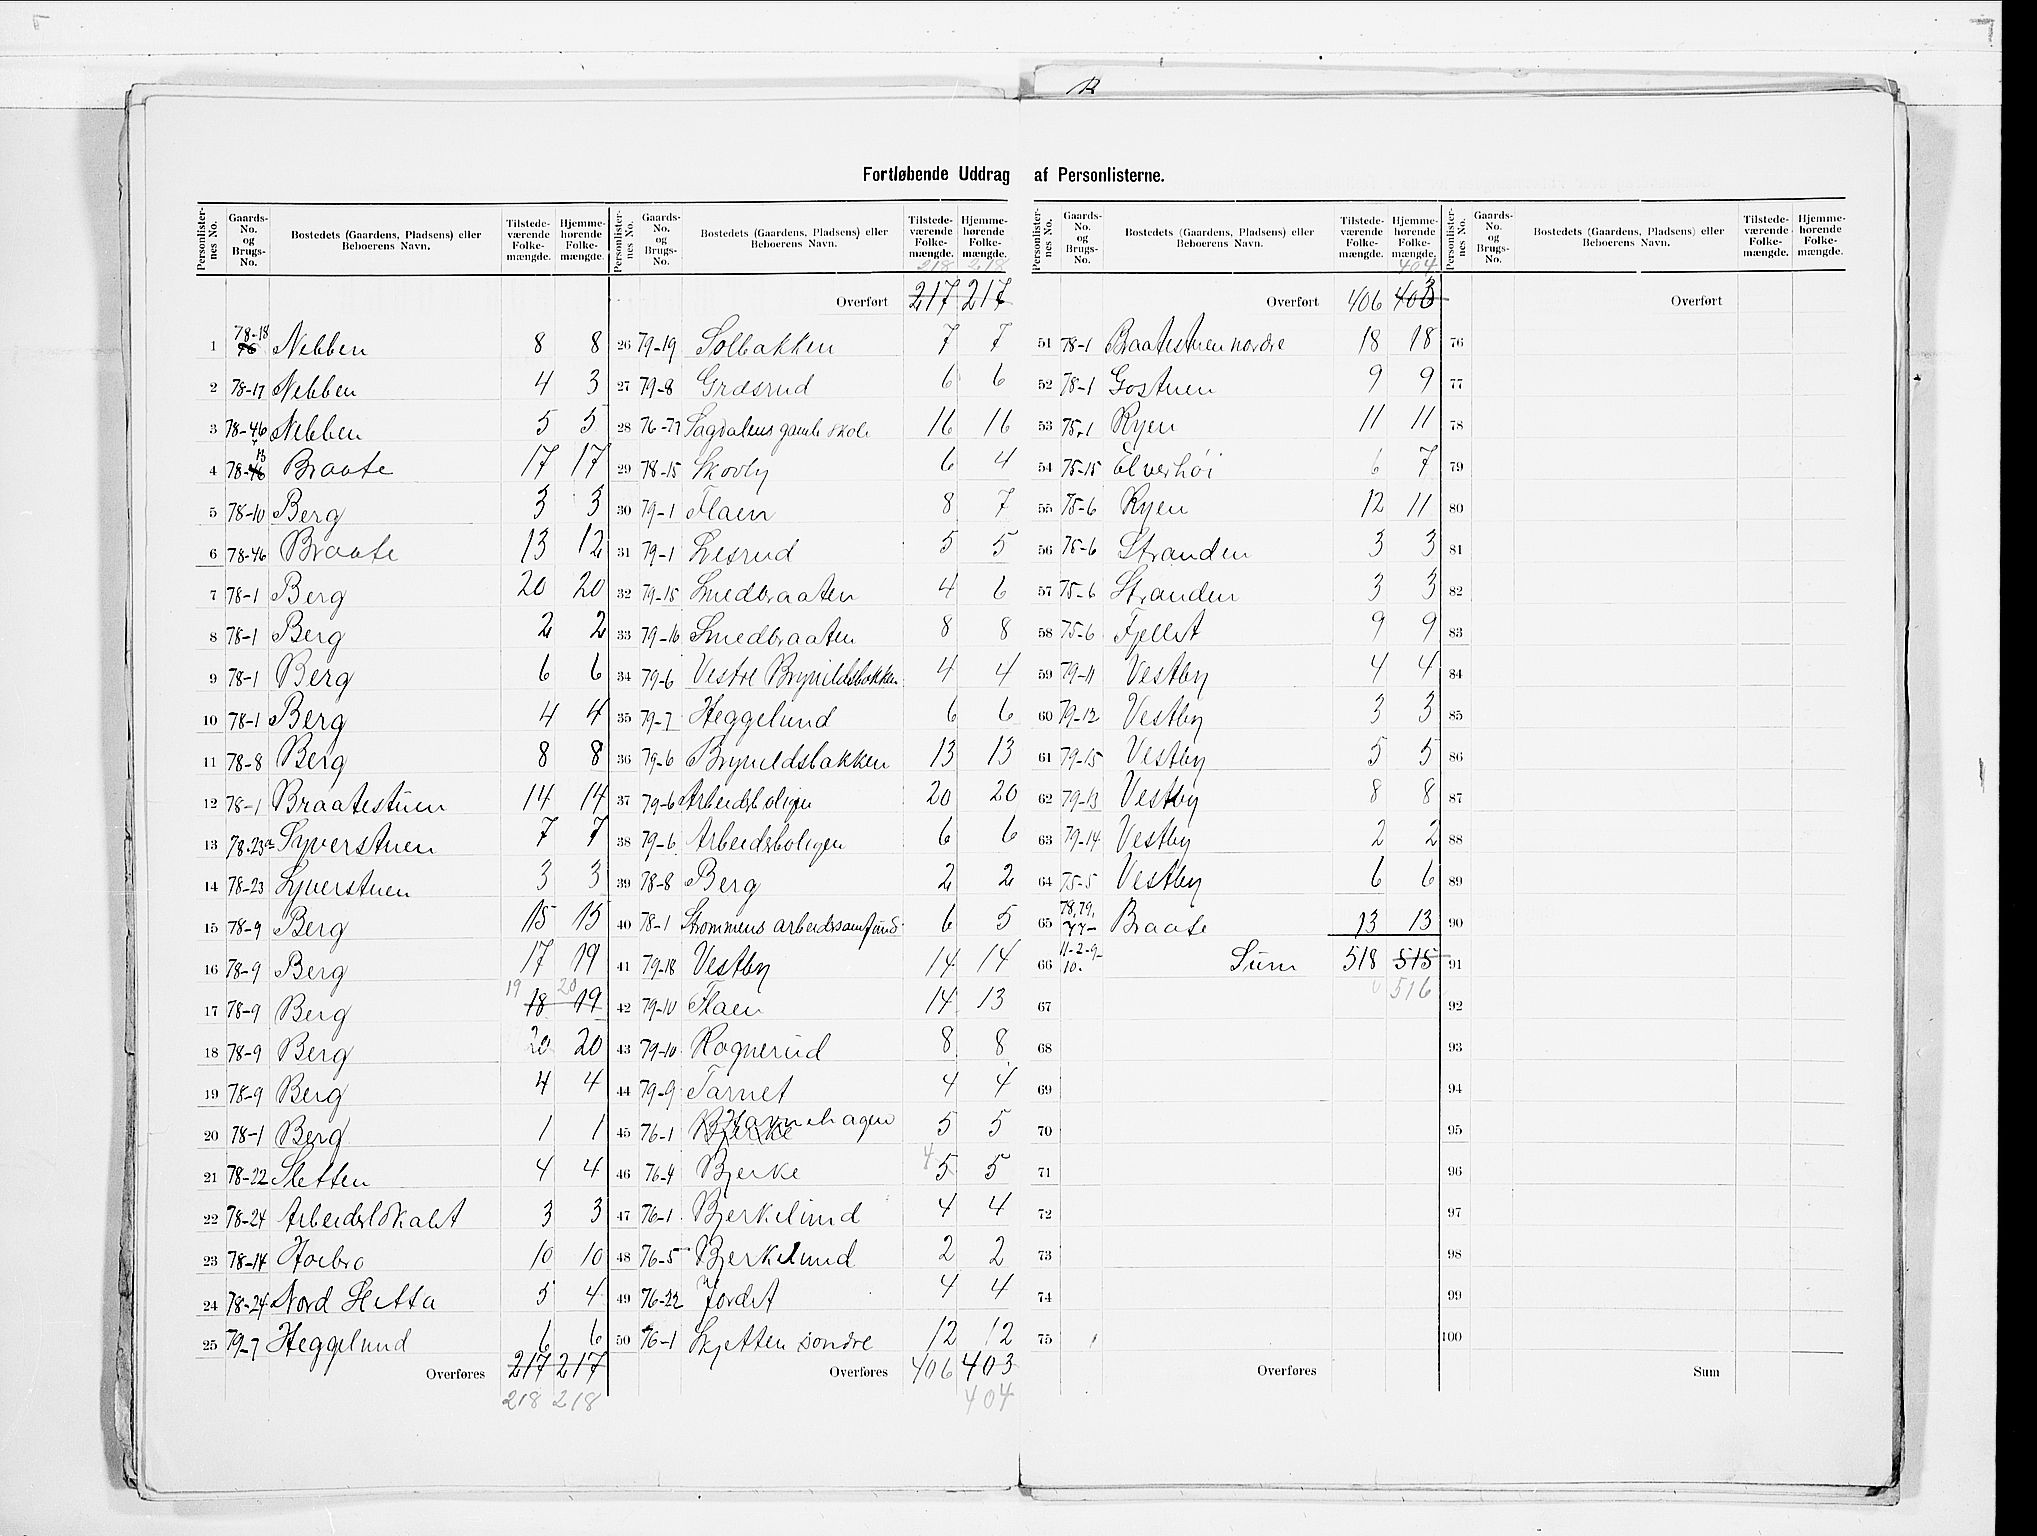 R
Fortløbende Uddrag af Personlisterne.
Personlister-nes No. Gaards-No. og Brugs-No. Bostedets (Gaardens, Pladsens) eller Beboerens Navn. Tilstede-værende Folke-mængde. Hjemme-hørende Folke-mængde.
1 78-18 Nebben 8 8
2 78-17 Nebben 4 3
3 78-46 Nebben 5 5
4 78-13 Braate 17 17
5 78-10 Berg 3 3
6 78-46 Braate 13 12
7 78-1 Berg 20 20
8 78-1 Berg 2 2
9 78-1 Berg 6 6
10 78-1 Berg 4 4
11 78-8 Berg 8 8
12 78-1 Braatestuen 14 14
13 78-23a Syverstuen 7 7
14 78-23 Syverstuen 3 3
15 78-9 Berg 15 15
16 78-9 Berg 17 19
17 78-9 Berg 19 18 20 19
18 78-9 Berg 20 20
19 78-9 Berg 4 4
20 78-1 Berg 1 1
21 78-22 Sletten 4 4
22 78-24 Arbeidslokalet 3 3
23 78-14 Hoebro 10 10
24 78-24 Nord Sletta 5 4
25 79-7 Heggelund 6 6
Overføres 217 217
218 218
Personlister-nes No. Gaards-No. og Brugs-No. Bostedets (Gaardens, Pladsens) eller Beboerens Navn. Tilstede-værende Folke-mængde. Hjemme-hørende Folke-mængde.
218 218
Overført 217 217
26 79-19 Solbakken 7 7
27 79-8 Græsrud 6 6
28 76-77 Sagdalens gamle skole 16 16
29 78-15 Skovly 6 4
30 79-1 Flaen 8 7
31 79-1 Lesrud 5 5
32 79-15 Smedbraaten 4 6
33 79-16 Smedbraaten 8 8
34 79-6 Vestre Brynildsbakken 4 4
35 79-7 Heggelund 6 6
36 79-6 Brynildsbakken 13 13
37 79-6 Arbeidsboligen 20 20
38 79-6 Arbeidsboligen 6 6
39 78-8 Berg 2 2
40 78-1 Strømmens arbeidersamfund 6 5
41 79-18 Vestby 14 14
42 79-10 Flaen 14 13
43 79-10 Rognerud 8 8
44 79-9 Tarnet 4 4
45 76-1 Bjerke Havnehagen 5 5
46 76-4 Bjerke 4 5 5
47 76-1 Bjerkelund 4 4
48 76-5 Bjerkelund 2 2
49 76-22 Jordet 4 4
50 76-1 Skjetten søndre 12 12
Overføres 406 403
404
Personlister-nes No. Gaards-No. og Brugs-No. Bostedets (Gaardens, Pladsens) eller Beboerens Navn. Tilstede-værende Folke-mængde. Hjemme-hørende Folke-mængde.
404
Overført 406 403
51 78-1 Braatestuen nordre 18 18
52 78-1 Gostuen 9 9
53 75-1 Ryen 11 11
54 75-15 Elverhøi 6 7
55 75-6 Ryen 12 11
56 75-6 Stranden 3 3
57 75-6 Stranden 3 3
58 75-6 Fjellet 9 9
59 79-11 Vestby 4 4
60 79-12 Vestby 3 3
61 79-15 Vestby 5 5
62 79-13 Vestby 8 8
63 79-14 Vestby 2 2
64 75-5 Vestby 6 6
65 78,79, 77- Braate 13 13
66 11-2-9-10. Sum 518 515
516
67
68
69
70
71
72
73
74
75
Overføres
Personlister-nes No. Gaards-No. og Brugs-No. Bostedets (Gaardens, Pladsens) eller Beboerens Navn. Tilstede-værende Folke-mængde. Hjemme-hørende Folke-mængde.
Overført
76
77
78
79
80
81
82
83
84
85
86
87
88
89
90
91
92
93
94
95
96
97
98
99
100
Sum